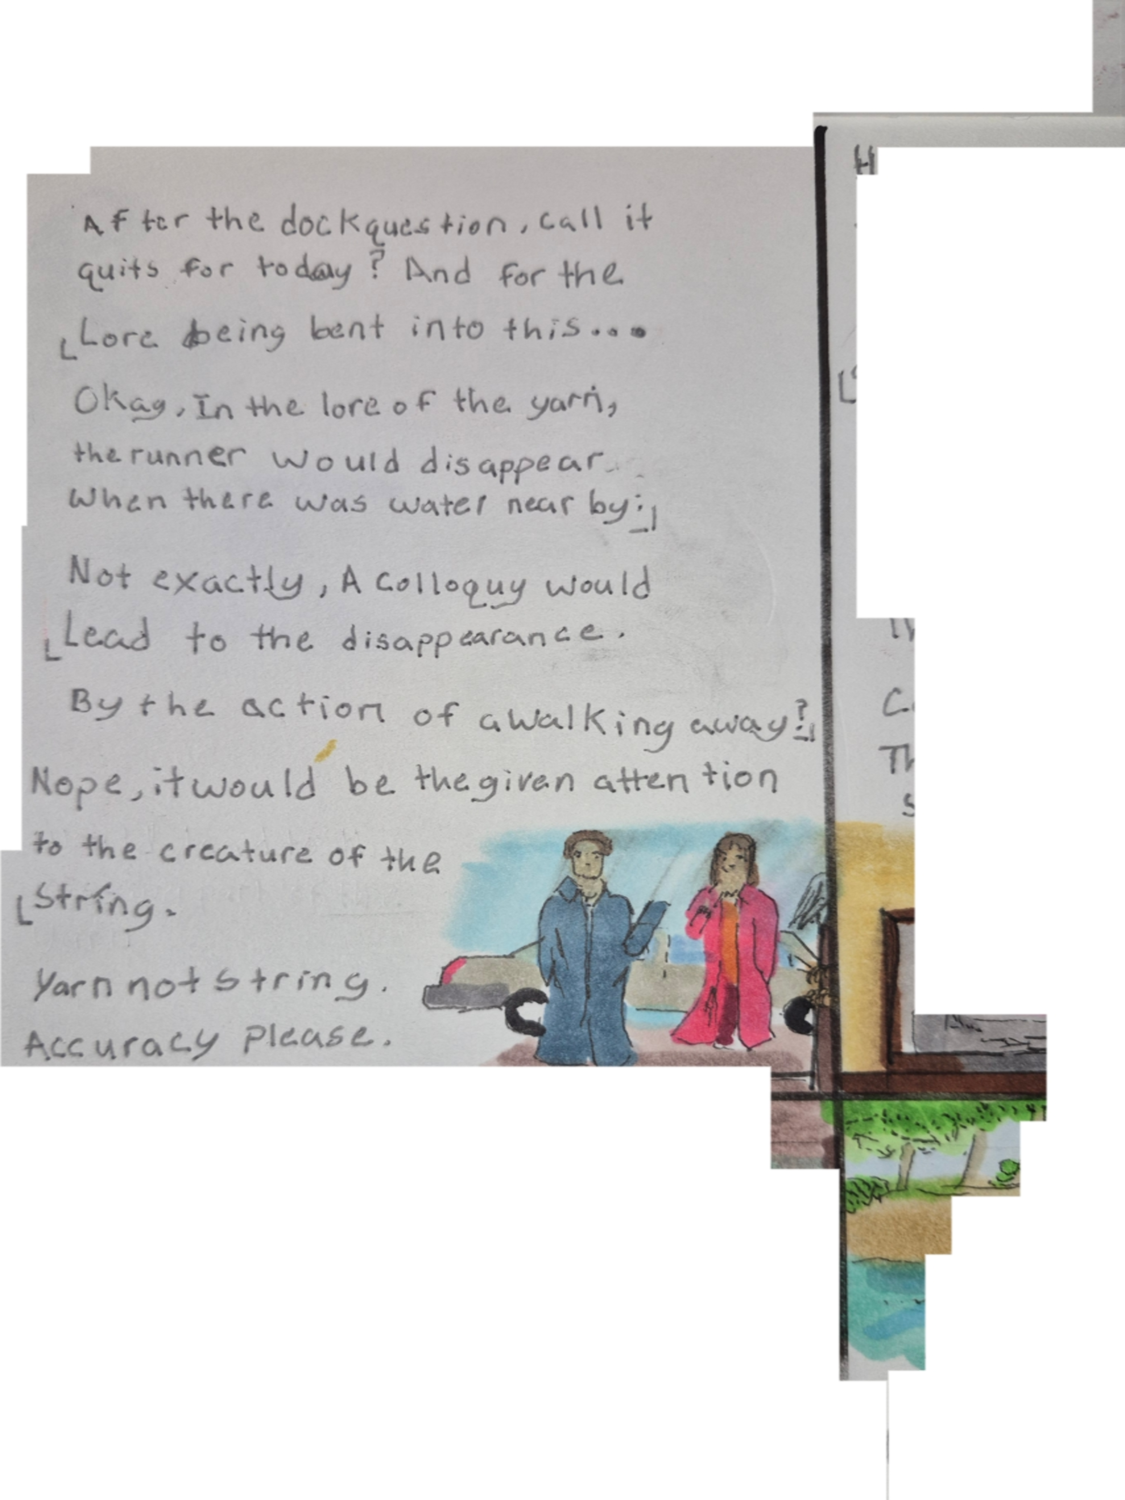 After the dock question, call it
quits for today? And for the
Lore being bent into this...
Okay, In the lore of the yarn,
the runner would disappear
When there was water near by;
Not exactly, A colloquy would
Lead to the disappearance.
By the action of a walking away?
Nope, it would be the given attention
to the creature of the
string.
Yarn not string.
Accuracy please.
H
Th